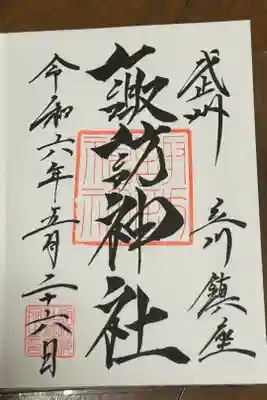 武州 立川鎮座
諏訪神社
令和六年五月二十六日